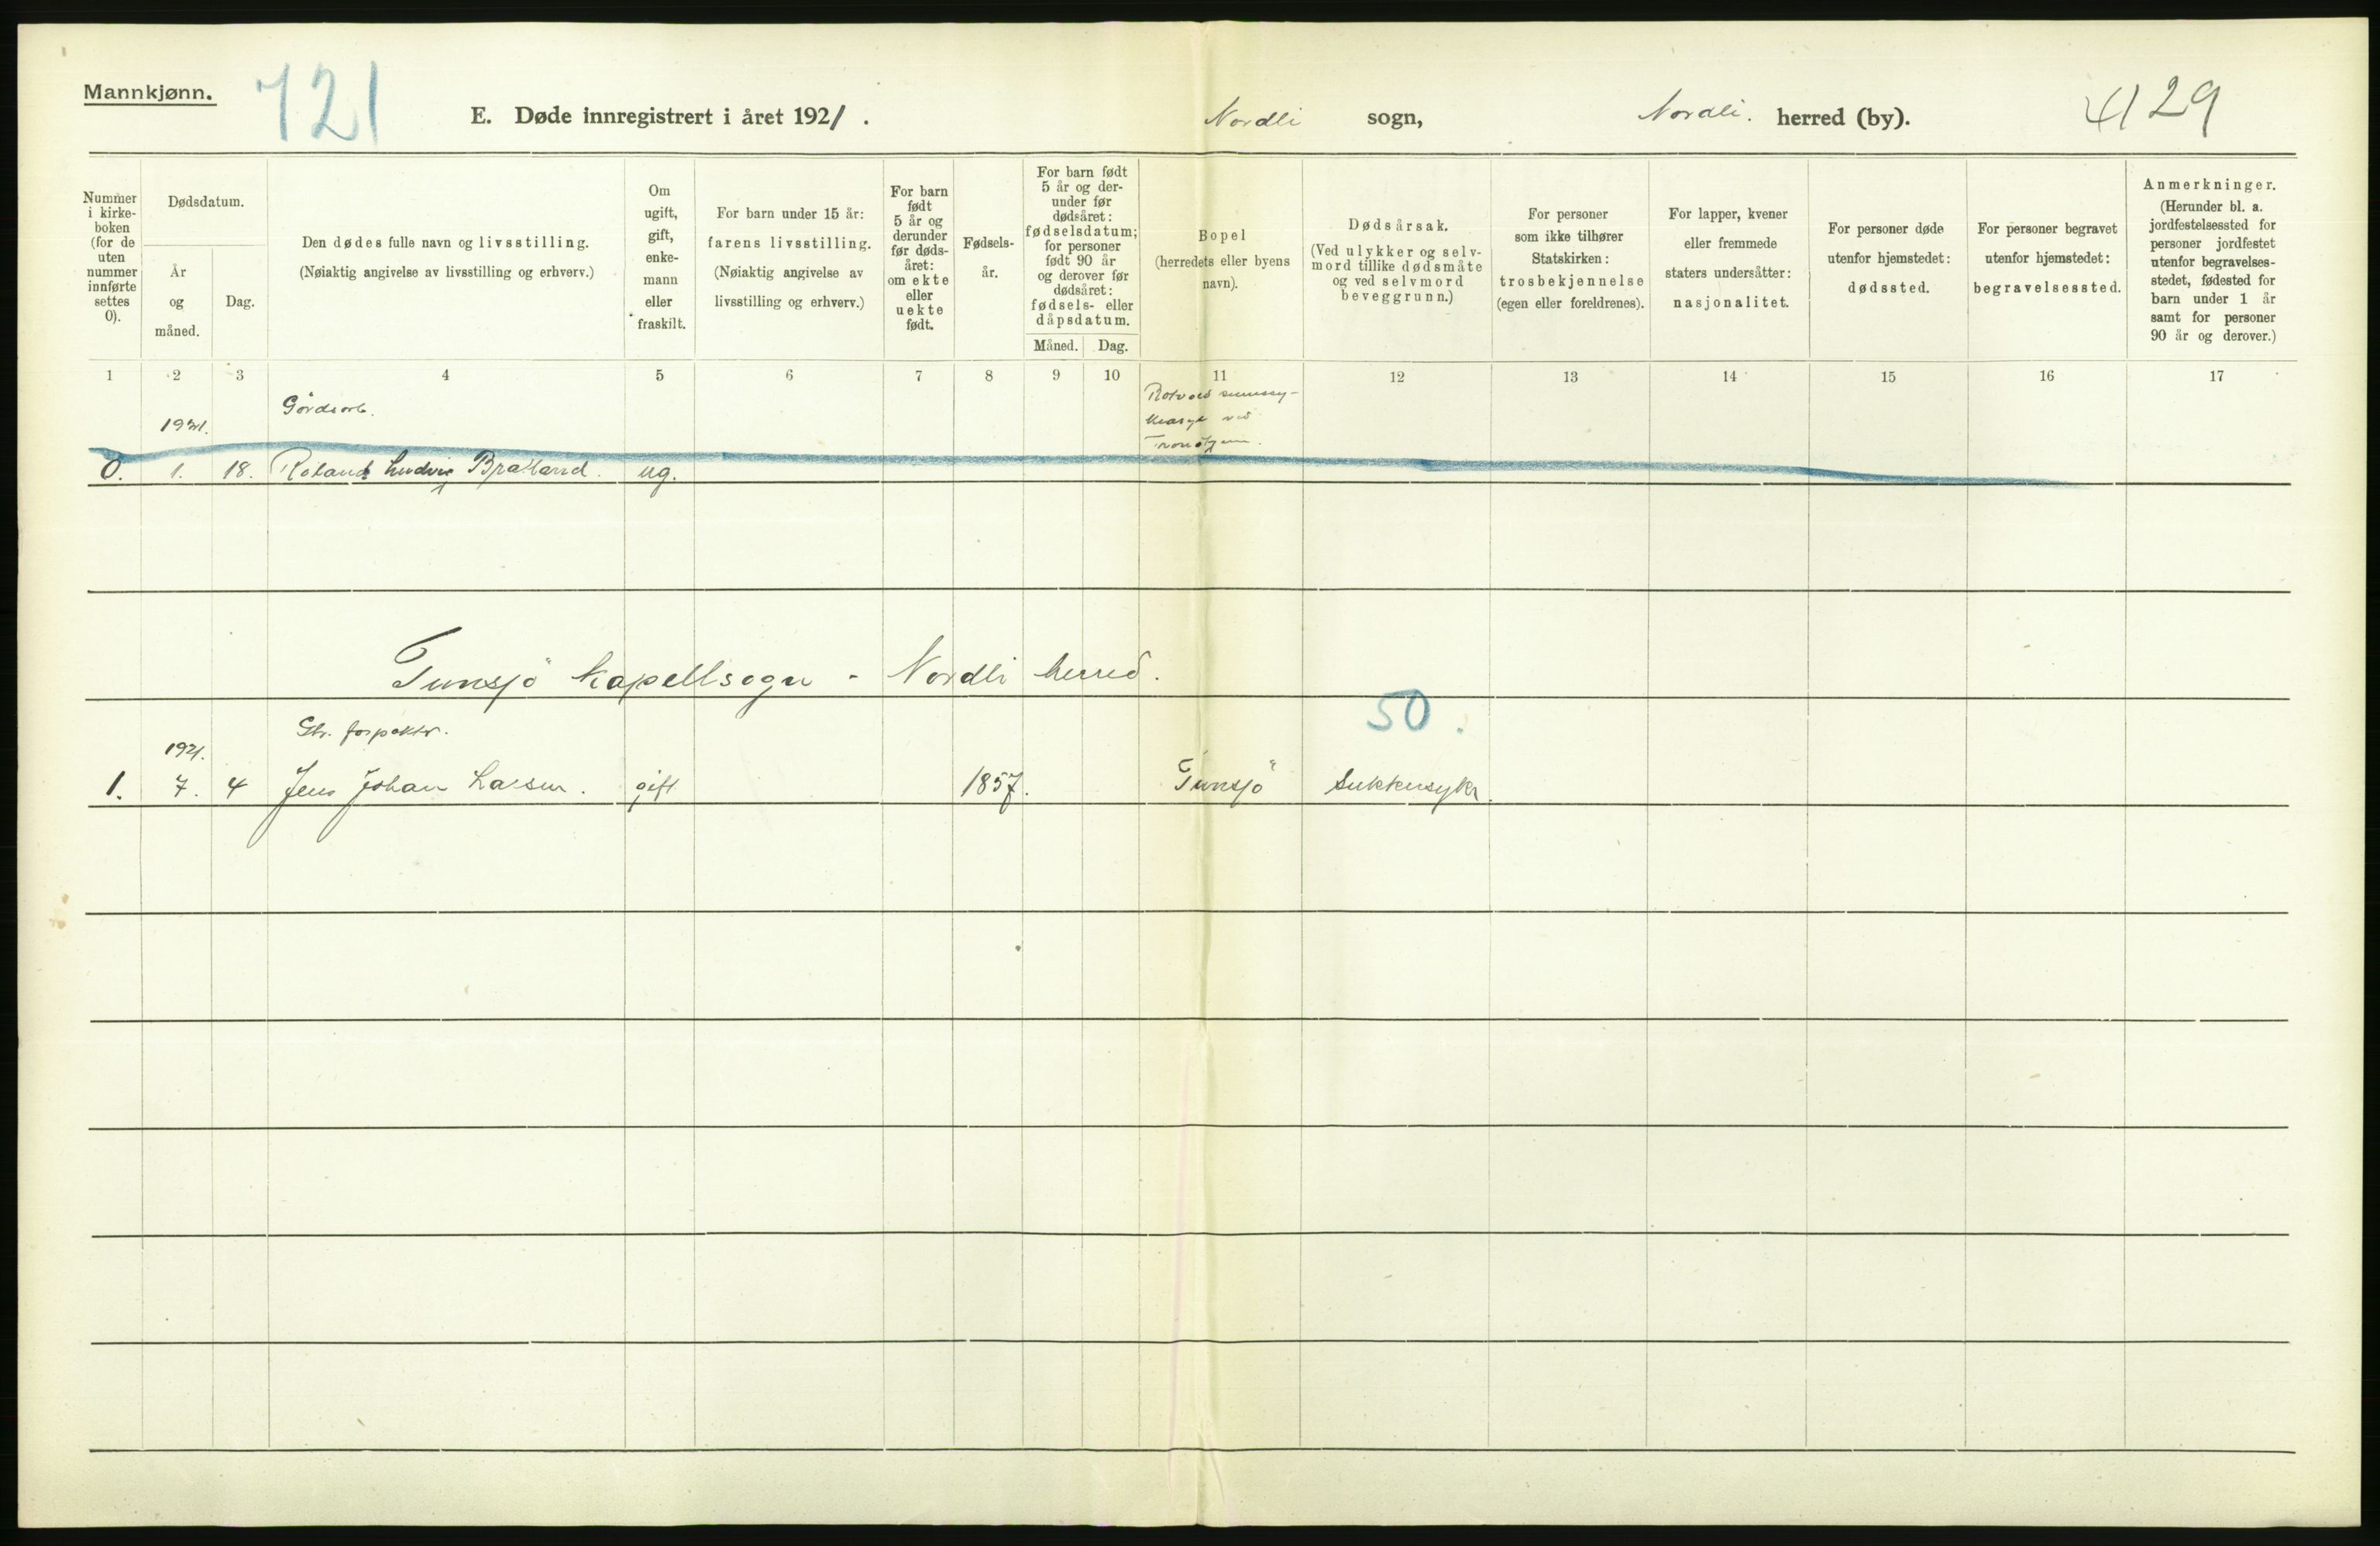 Mannkjønn.
721
E. Døde innregistrert i året 1921.
Nordli sogn,
Nordli. herred (by).
29
Nummer i kirke- boken (for de uten nummer innførte settes 0).
Dødsdatum.
År og måned.
Dag.
Den dødes fulle navn og livsstilling.
(Nøiaktig angivelse av livsstilling og erhverv.)
Om ugift, gift, enke- mann eller fraskilt.
For barn under 15 år:
farens livsstilling.
(Nøiaktig angivelse av
livsstilling og erhverv.)
For barn født 5 år og derunder før døds- året: om ekte eller uekte født.
Fødsels- år.
For barn født 5 år og der- under før dødsåret: fødselsdatum; for personer født 90 år og derover før dødsåret: fødsels- eller dåpsdatum.
Måned.
Dag.
Bopel
(herredets eller byens
navn).
Dødsårsak.
(Ved ulykker og selv- mord tillike dødsmåte og ved selvmord beveggrunn.)
For personer
som ikke tilhører
Statskirken:
trosbekjennelse
(egen eller foreldrenes).
For lapper, kvener
eller fremmede
staters undersåtter:
nasjonalitet.
For personer døde
utenfor hjemstedet:
dødssted.
For personer begravet
utenfor hjemstedet:
begravelsessted.
Anmerkninger.
(Herunder bl. a.
jordfestelsessted for
personer jordfestet
utenfor begravelses-
stedet, fødested for
barn under 1 år
samt for personer
90 år og derover.)
1 2 3 4 5 6 7 8 9 10 11 12 13 14 15 16 17
Gårdsarb.
1921.
0. 1. 18. Roland Ludvig Bratland. ug.
Tunsjö kapellsogn - Nordli herred.
50.
1921.
1. 7. 4 Jens Johan Larsen. gift 1857. Tunsjö Sukkersyke